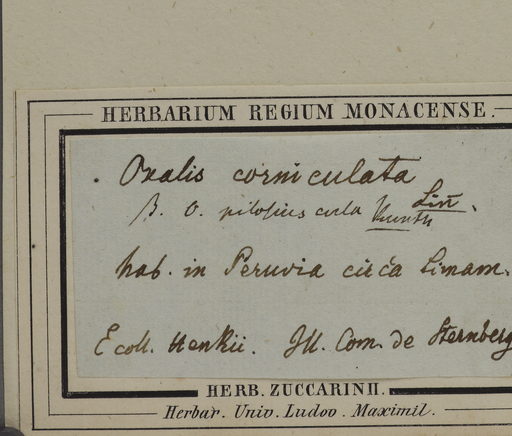 HERBARIUM REGIUM MONACENSE.
. Oxalis corniculata
Lin.
β. O. pilosiuscula Kunth
hab. in Peruvia circa Limam.
E coll. Henkii. Ill. Com. de Sternberg
HERB. ZUCCARINII.
Herbar. Univ. Ludov. Maximil.